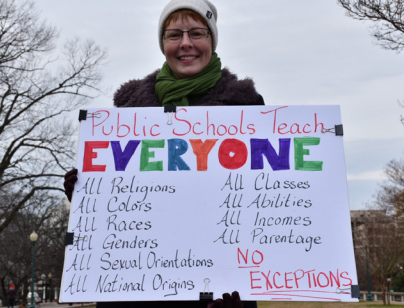 Public Schools Teach
EVERYONE
All Religions
All Colors
All Races
All Genders
All Sexual Orientations
All National Origins
All Classes
All Abilities
All Incomes
All Parentage
NO
EXCEPTIONS